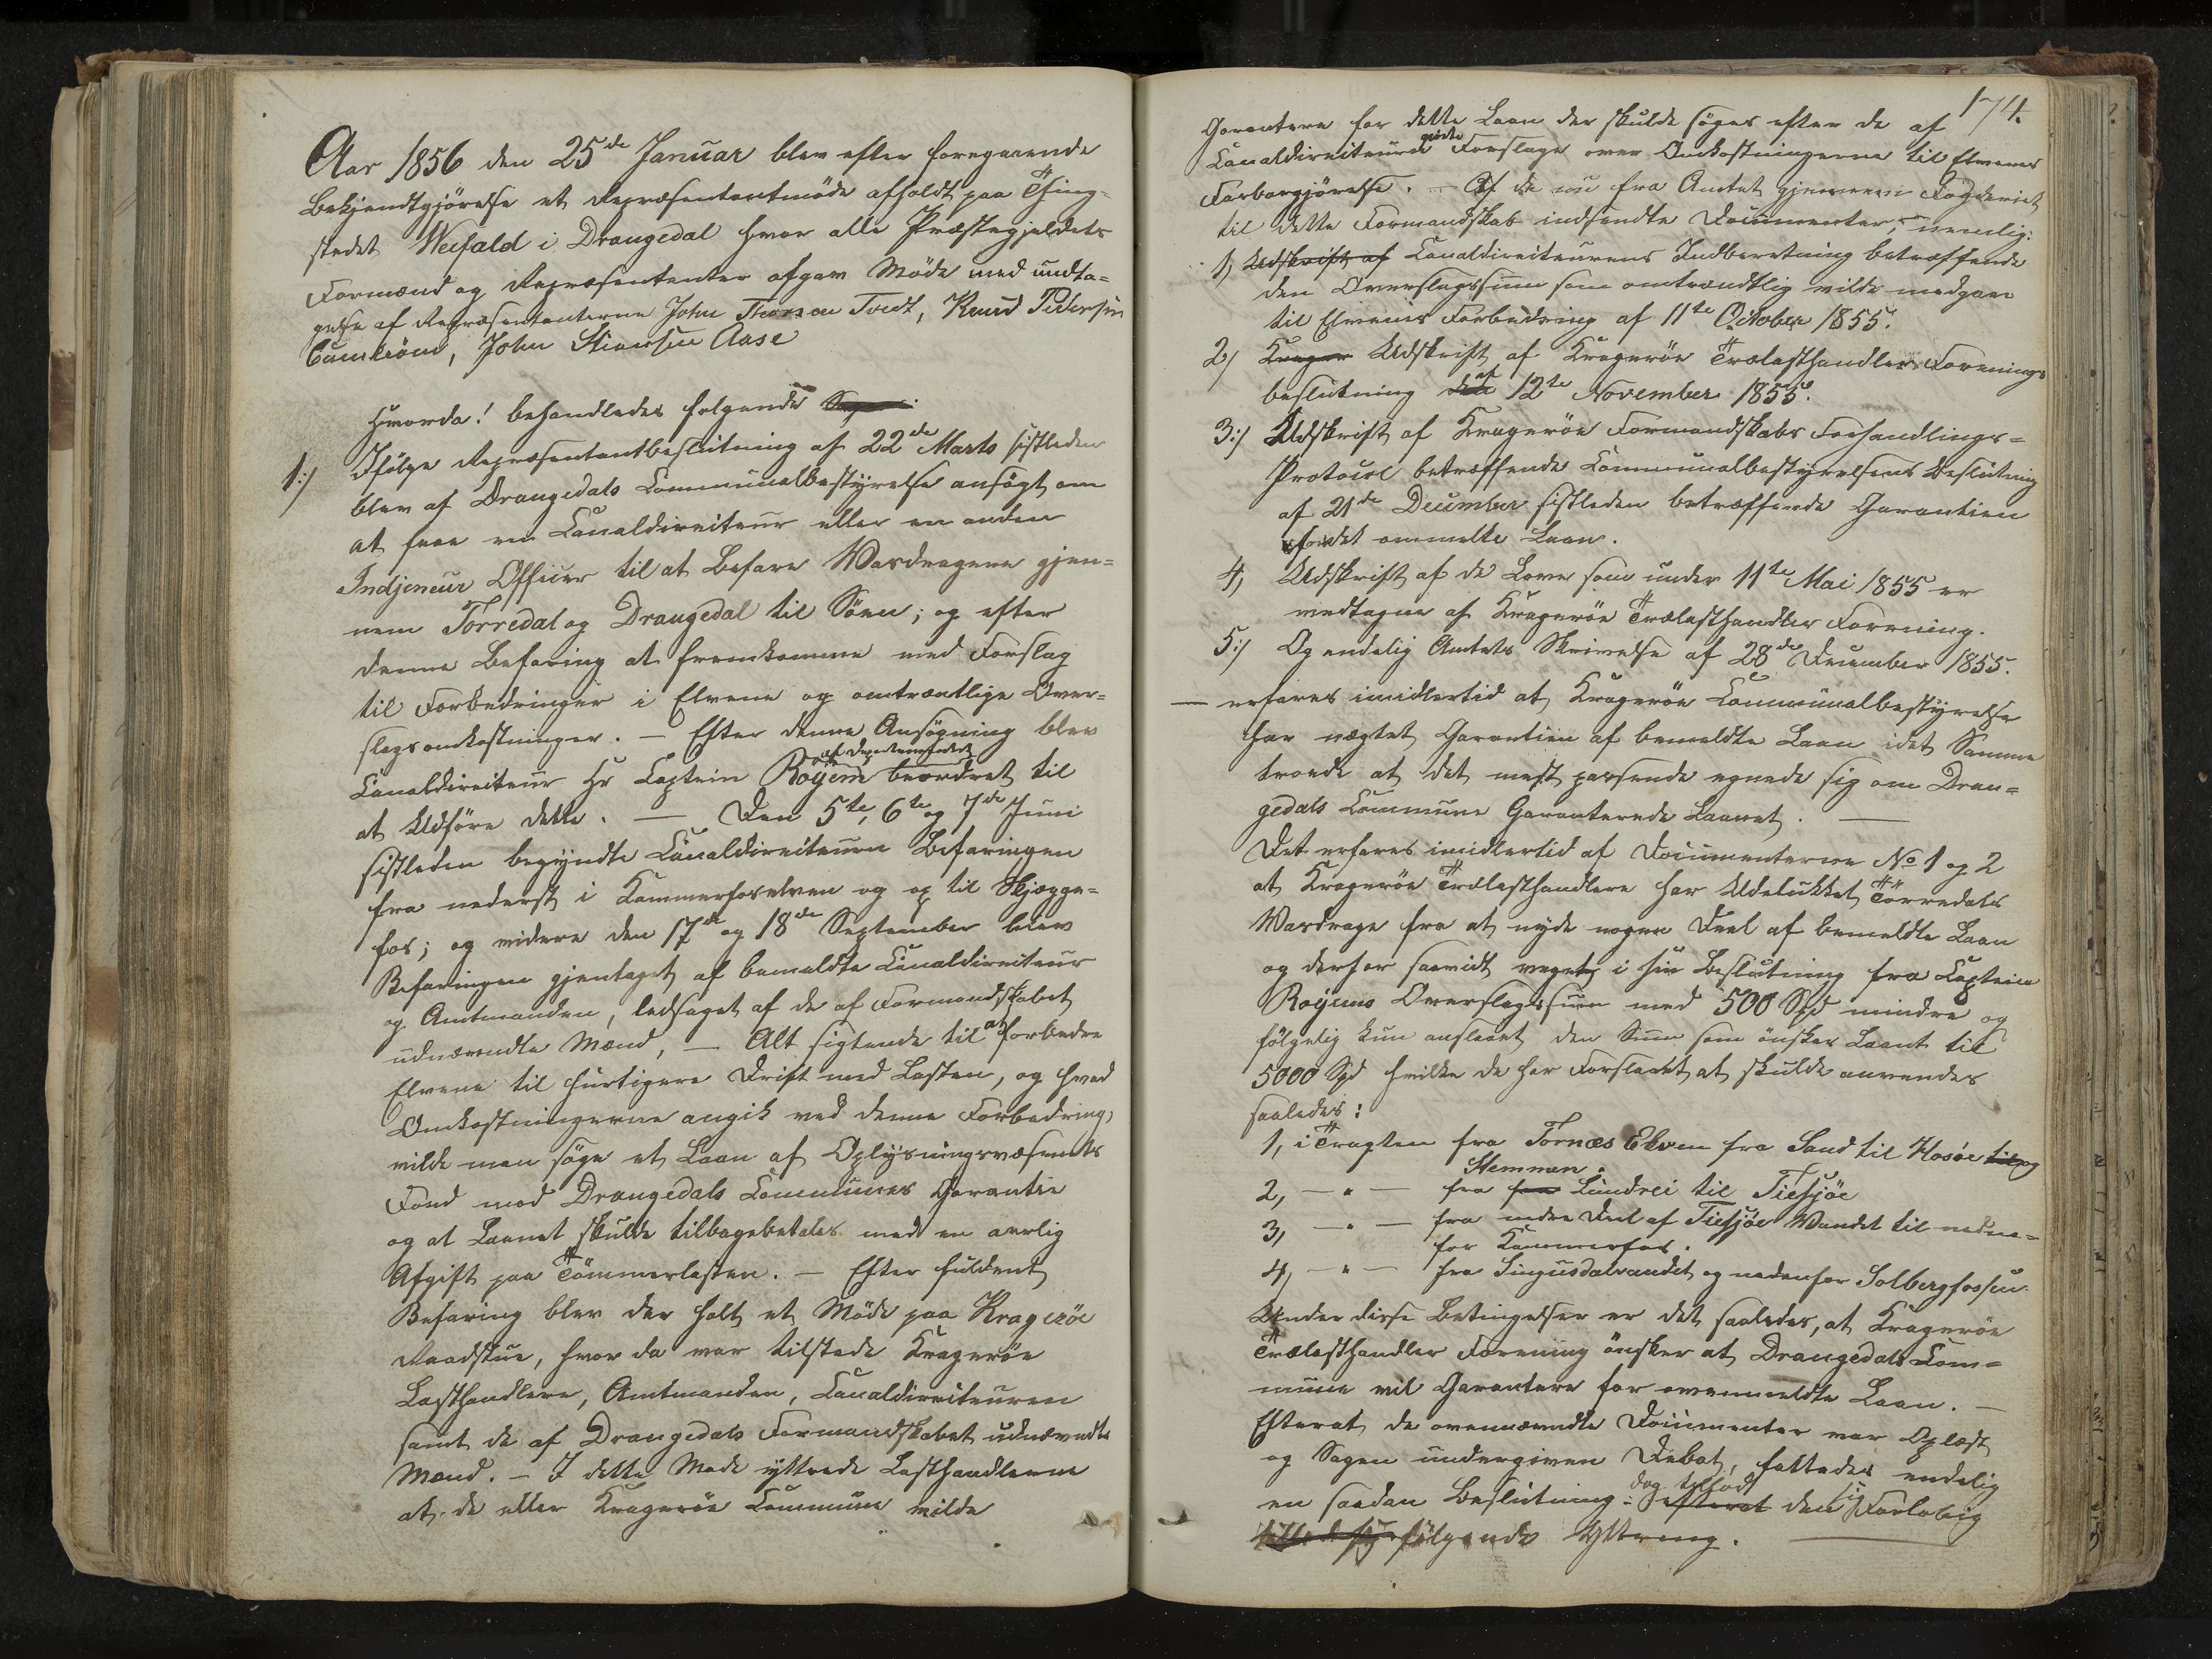 Aar 1856 den 25de Januar blev efter foregaaende
Bekjendtgjörelse et Repræsentantmöde afholdt paa Thing-
stedet Weefald i Drangedal hvor alle Præstegjeldets
Formænd og Repræsentanter afgav Möde med undta-
gelse af Repræsentanterne John Thorsen Tvedt, Knud Pedersen
John Stiansen Aase
Hvorda! behandledes folgende
1:/ Ifölge Repræsentantbeslutning af 22de Marts sistleden
blev af Drangedals Communalbestyrelse ansögt om
at faae en Canaldirecteur eller en anden
Indjeneur Officer til at Befare Vasdragene gjen-
nem Torredal og Drangedal til Söen; og efter
denne Befaring at fremkomme med Forslag
til Forbedringer i Elvene og omtræntlige Over-
slagsomkostninger. – Efter denne Ansögning blev
Canaldirecteur Hr Captein Röyem af Departementet beordret til
at Udföre dette. — Den 5te, 6te og 7de Juni
sistleden begyndte Canaldirecteuren Befaringen
fra nederst i Kammerfoselven og op til Skjægge-
fos; og videre den 17de og 18de September blev
Befaringen gjentaget af bemeldte Canaldirecteur
og Amtmanden, ledsaget af de af Formandskabet
udnævndte Mænd, – Alt sigtende til at forbedre
Elvene til hurtigere Drift med Lasten, og hvad
Omkostningerne angik ved denne Forbedring,
vilde man söge et Laan af Oplysningsvæsenets
Fond mod Drangedals Communes Garantie
og at Laanet skulde tilbagebetales med en aarlig
Afgift paa Tömmerlasten. – Efter fuldent
Befaring blev der holt et Möde paa Krageröe
Raadstue, hvor da var tilstede Krageröe
Lasthandlere, Amtmanden, Canaldirecteuren
samt de af Drangedals Formandskabet udnævndte
Mænd. – I dette Mode yttrede Lasthandlerne
at de eller Krageröe Commune vilde
174.
Garantere for dette Laan der skulde söges efter de af
Canaldirecteuren gjorte Forslage over Omkostningerne til Elvenes
Farbargjörelse. – Af de nu fra Amtet gjennem Fogderiet
til dette Formandskab indsendte Documenter, nemlig:
1, Udskrift af Canaldirecteurens Indberetning betræffende
den Overslagssum som omtrændtlig vilde medgaae
til Elvenes Forbedring af 11te October 1855.
2/ Krager Udskrift af Krageröe Trælasthandler Forenings
beslutning den af 12te November 1855.
3:/ Udskrift af Krageröe Formandskabs Forhandlings-
Protocol betræffende Communalbestyrelsens Beslutning
af 21de December sistleden betræffende Garantien
for det ommelte Laan.
4, Udskrift af de Love som under 11te Mai 1855 er
vedtagne af Krageröe Trælasthandler Forening.
5:/ Og endelig Amtets Skrivelse af 28de December 1855.
— erfares imidlertid at Krageröe Communalbestyrelse
har nægtet Garantien af bemeldte Laan idet Samme
troede at det mest passende egnede sig om Dran-
gedals Commune Garanterede Laanet. —
Det erfares imidlertid af Documenterne No 1 og 2
at Krageröe Trælasthandlere har Udelukket Törredals
Vasdrage fra at nyde nogen Deel af bemeldte Laan
og derfor saavidt veget i sin Beslutning fra Captein
Röyems Overslagssum med 500 Spd mindre og
fölgelig kun anslaaet den Sum som önskes Laant til
5000 Spd hvilke de har Forslaaet at skulde anvendes
saaledes:
1, i Tragten fra Tornæs Elven fra Sand til Hosöe til og
Stemmen.
2, – " – fra fra Lundrei til Tiefjöe
3, – " – fra nedre Deel af Tiefjöe Vandet til neden-
for Kammerfos.
4, – " – fra Lingusdalvandet og nedenfor Solbergfossen.
Under disse Betingelser er det saaledes, at Krageröe
Trælasthandler Forening önsker at Drangedals Com-
mune vil Garantere for ovenmeldte Laan. –
Efterat de ovennævndte Documenter var Oplæst
og Sagen undergiven Debat, fattedes endelig
en saadan Beslutning: efterat dog tilföd den sig Forlobig
fölgende Yttring.